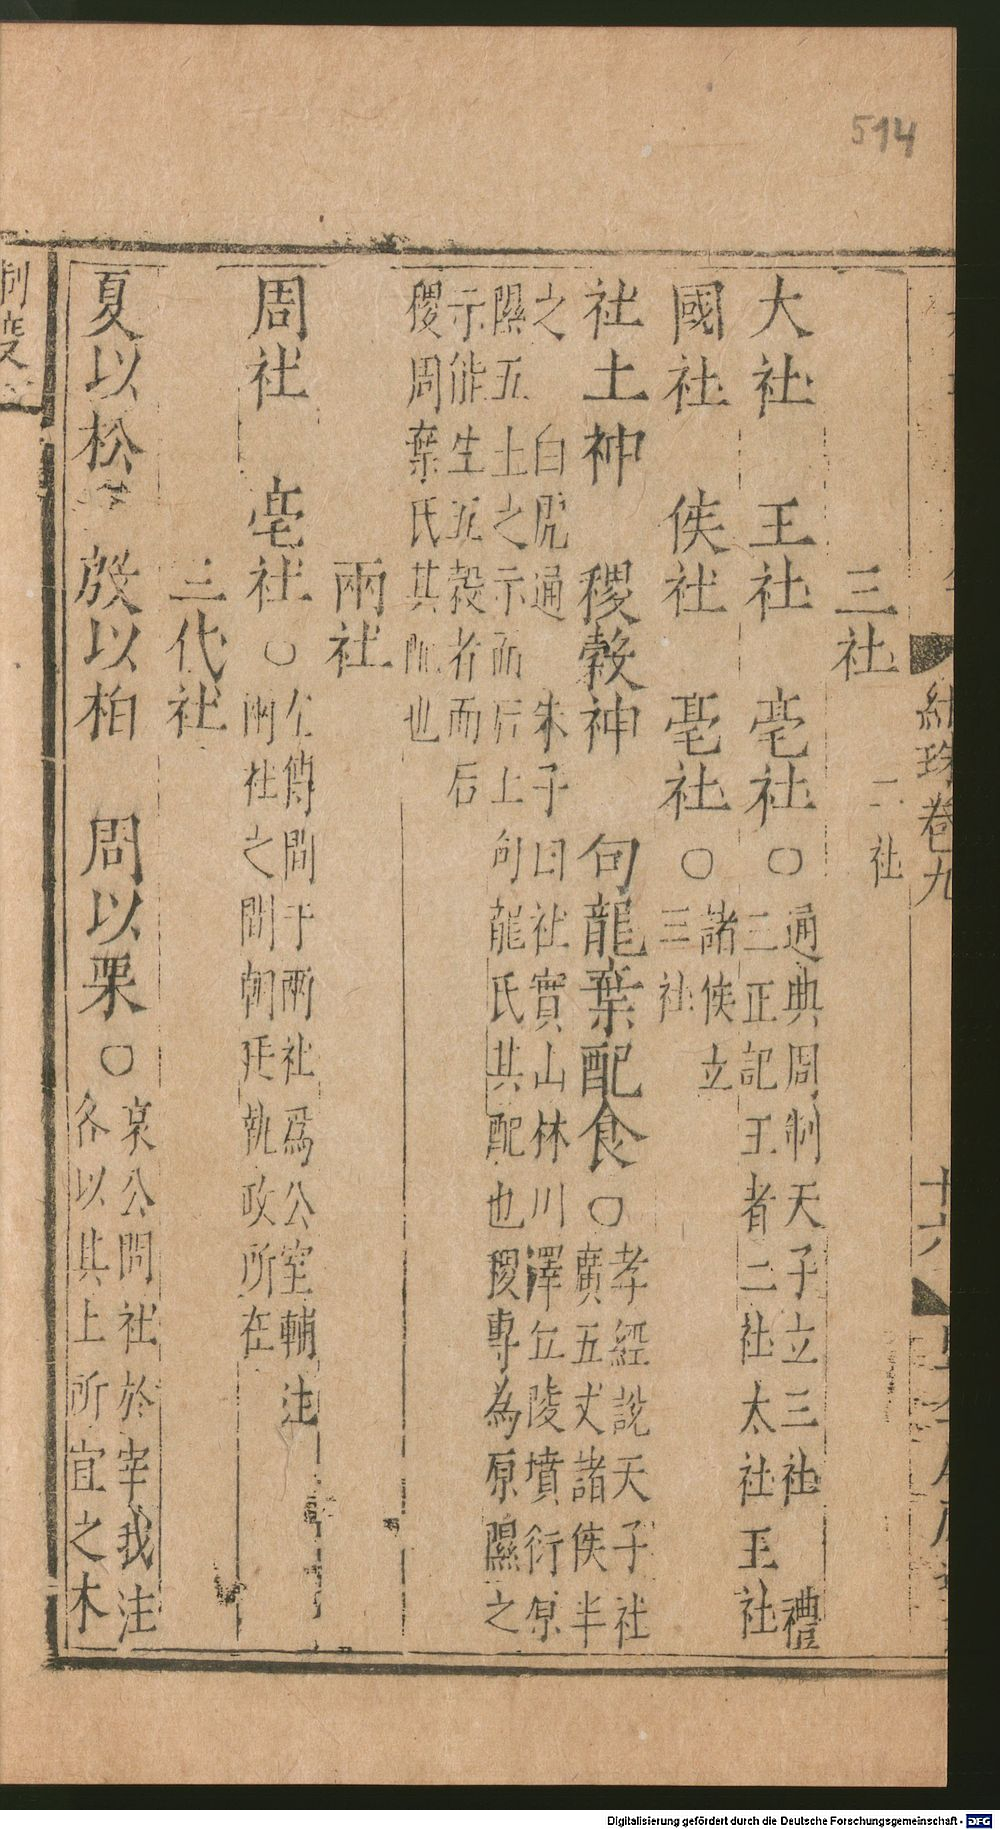 514
紺珠卷九
十六
三社
二社
大社 王社 亳社○通典周制天子立三社 禮
三正記王者二社太社王社
國社 侯社 亳社○諸侯立
三社
社土神 稷穀神 句龍棄配食○孝經說天子社
廣五丈諸侯半
之 白虎通 朱子曰社實山林川澤丘陵墳衍原
隰五土之示而后土句龍氏其配也稷專為原隰之
示能生五穀者而后
稷周棄氏其配也
兩社
周社 亳社○左傳間于兩社爲公室輔注
兩社之間朝廷執政所在
三代社
夏以松 殷以柏 周以栗○哀公問社於宰我注
各以其土所宜之木
制度
Digitalisierung gefördert durch die Deutsche Forschungsgemeinschaft - DFG